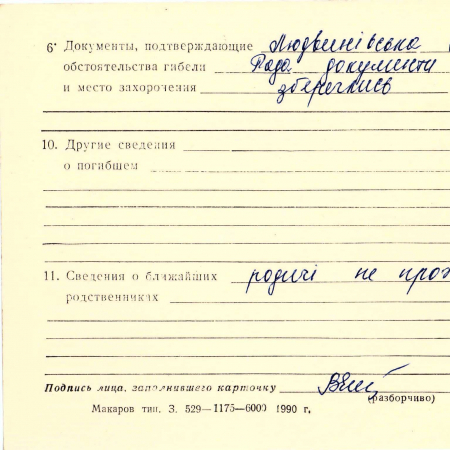 6' Документы, подтверждающие Людвинівська
обстоятельства гибели Рада. документи
и место захоронения збереглись
10. Другие сведения
о погибшем
11. Сведения о ближайших родичі не
родственниках
Подпись лица, заполнившего карточку
(разборчиво)
Макаров тип. З. 529—1175—6000 1990 г.